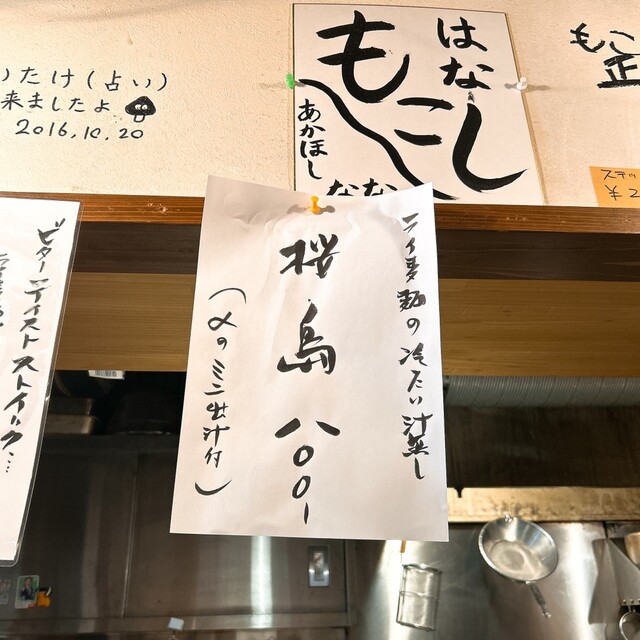 いたけ(占い)
来ましたよ
2016.10.20
はなし
もこ
あかほし
なな
もこ
正
ステッ
¥2
ライ麦麺の冷たい汁無し
桜島 八〇〇-
(〆のミニ出汁付)
ビターテイストストイック…